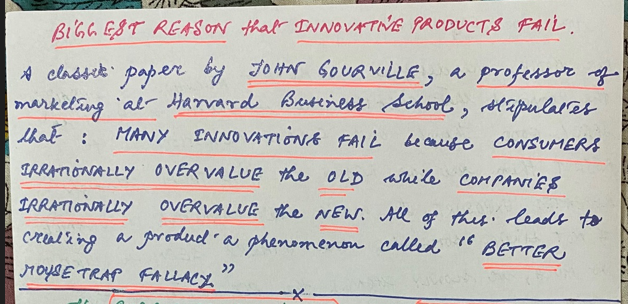 BIGGEST REASON that INNOVATIVE PRODUCTS FAIL.
A classic paper by JOHN GOURVILLE, a professor of
marketing at Harvard Business School, stipulates
that : MANY INNOVATIONS FAIL because CONSUMERS
IRRATIONALLY OVERVALUE the OLD while COMPANIES
IRRATIONALLY OVERVALUE the NEW. All of this leads to
creating a product a phenomenon called "BETTER
MOUSETRAP FALLACY"
x